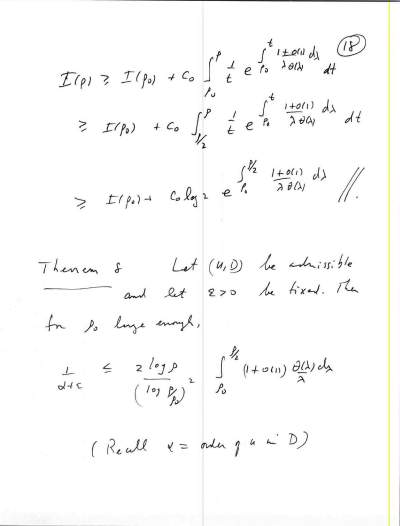 18
I(ρ) ≥ I(ρ₀) + C₀ ∫_{ρ₀}^{ρ} 1/t e^{∫_{ρ₀}^{t} (1+o(1))/(λθ(λ)) dλ} dt
≥ I(ρ₀) + C₀ ∫_{ρ/2}^{ρ} 1/t e^{∫_{ρ₀}^{t} (1+o(1))/(λθ(λ)) dλ} dt
≥ I(ρ₀) + C₀ log 2 e^{∫_{ρ₀}^{ρ/2} (1+o(1))/(λθ(λ)) dλ} //.
Theorem 8 Let (u, D) be admissible
and let ε>0 be fixed. Then
for ρ₀ large enough,
1/(α+ε) ≤ 2 log ρ/(log ρ/ρ₀)² ∫_{ρ₀}^{ρ/2} (1+o(1)) θ(λ)/λ dλ
(Recall α = order of u in D)